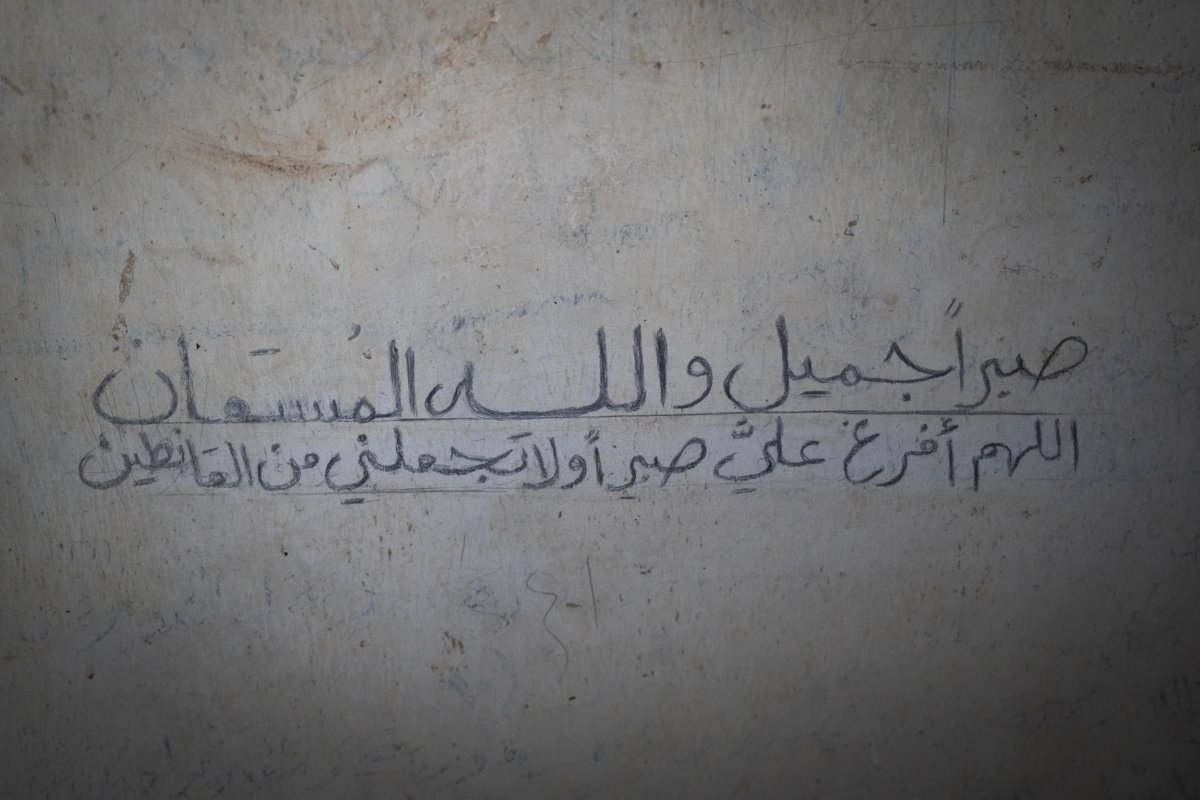 صبراً جميل والله المُستعان
اللهم أفرغ عليَّ صبراً ولا تَجعلني من القانطين